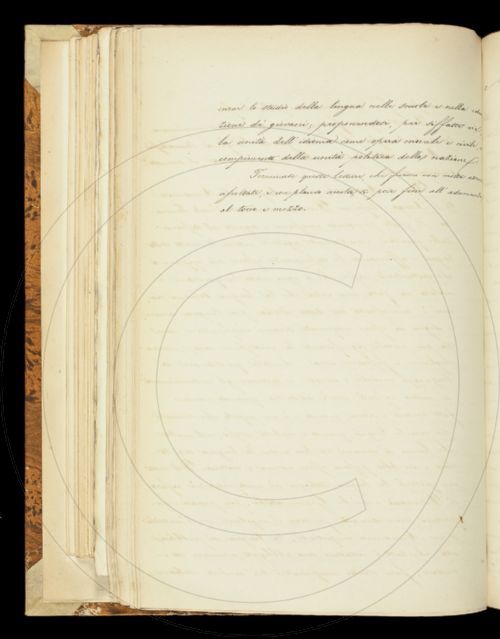 curar lo studio della lingua nelle scuole e nella edu
zione de' giovani, proponendosi, per siffatto
la unità dell'idioma come opera morale e civile
compimento della unità politica della nazione.
Terminate queste letture, che furono con molta
ascoltate, e con plauso accolte, si pose fine all'adunanza
al tocco e mezzo.